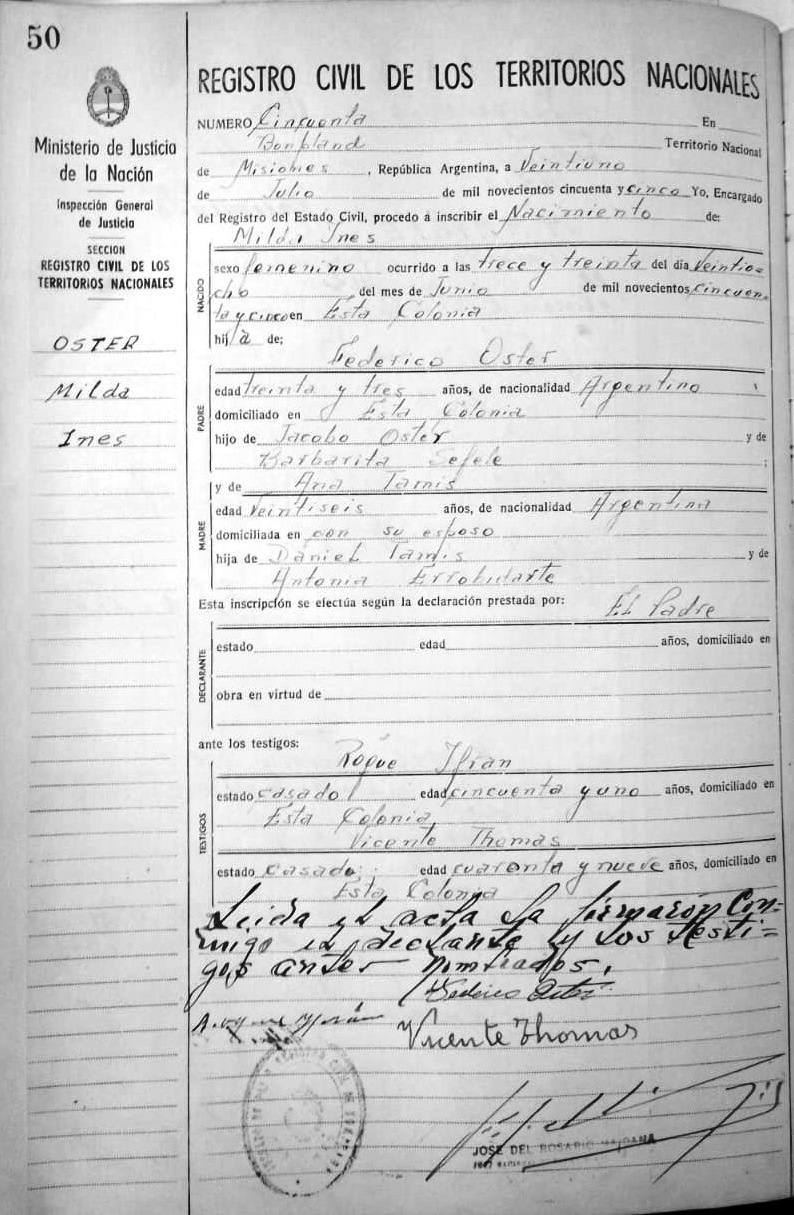 50
Ministerio de Justicia
de la Nación
Inspección General
de Justicia
SECCION
REGISTRO CIVIL DE LOS
TERRITORIOS NACIONALES
OSTER
Milda
Ines
REGISTRO CIVIL DE LOS TERRITORIOS NACIONALES
NUMERO Cincuenta En
Bonpland Territorio Nacional
de Misiones, República Argentina, a Veintiuno
de Julio de mil novecientos cincuenta y cinco Yo, Encargado
del Registro del Estado Civil, procedo a inscribir el Nacimiento de:
Milda Ines
NACIDO
sexo femenino ocurrido a las trece y treinta del día Veintio=
cho del mes de Junio de mil novecientos cincuen=
ta y cinco en Esta Colonia
hija de;
Federico Oster
PADRE
edad treinta y tres años, de nacionalidad Argentino
domiciliado en Esta Colonia
hijo de Jacobo Oster y de
Barbarita Sefele;
y de Ana Tamis
MADRE
edad Veintiseis años, de nacionalidad Argentina
domiciliada en con su esposo
hija de Daniel Tamis y de
Antonia Errobidarte
Esta inscripción se efectúa según la declaración prestada por: El Padre
DECLARANTE
estado edad años, domiciliado en
obra en virtud de
ante los testigos:
Roque Ifran
TESTIGOS
estado casado edad cincuenta y uno años, domiciliado en
Esta Colonia
Vicente Thomas
estado casado; edad cuarenta y nueve años, domiciliado en
Esta Colonia
Leida el acta la firmarón Con=
migo el declante y los testi=
gos antes nombrados.
Federico Oster
Vicente Thomas
JOSE DEL ROSARIO MAIDANA